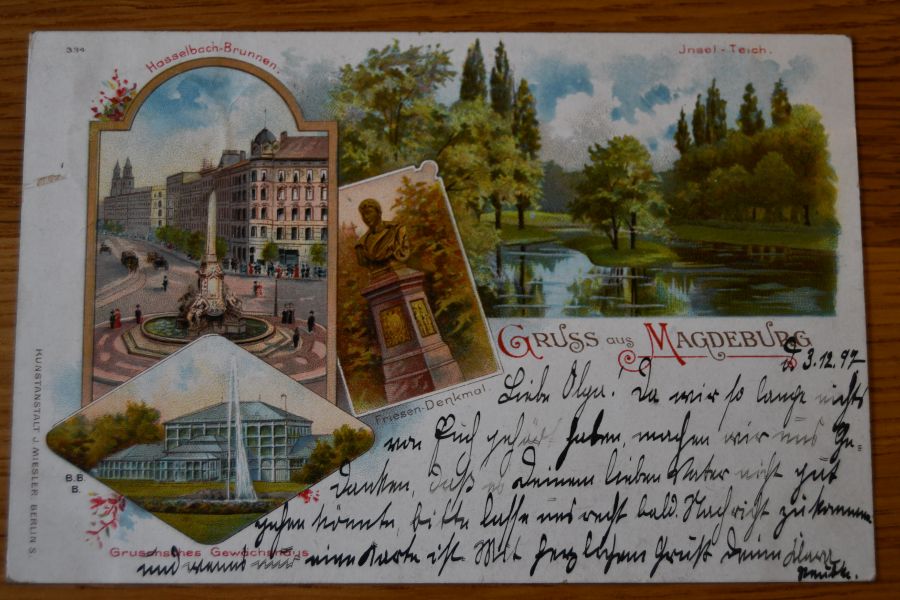 334
Hasselbach-Brunnen.
Jnsel-Teich.
GRUSS aus MAGDEBURG
d 3.12.97
Friesen-Denkmal.
Liebe Olga! Da wir so lange nichts
von Euch gehört haben, machen wir uns Ge-
danken, daß es Deinem lieben Vater nicht gut
gehen könnte, bitte lasse uns recht bald Nachricht zukommen
und wenns nur eine Karte ist. Mit herzlichem Gruß Deine
B.B.
B.
Grusonsches Gewächshaus
KUNSTANSTALT J. MIESLER, BERLIN S.